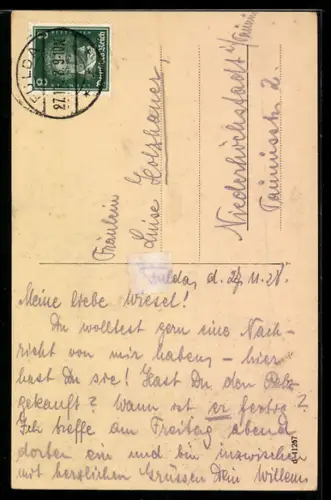 FULDA
27.11.
Deutsches Reich
8
Fräulein
Luise Holzhauer,
Niederhöchstadt i/Taunus
Taunusstr. 2.
Fulda, d. 27.11.28.
Meine liebe Wiesel!
Du wolltest gern eine Nach-
richt von mir haben, – hier
hast Du sie! Hast Du den Pelz
gekauft? Wann ist er fertig?
Ich treffe am Freitag abend
dorten ein und bin inzwischen
mit herzlichen Grüssen Dein Willem.